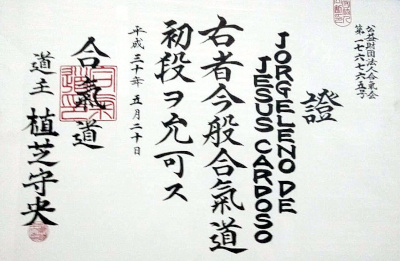 公益財団法人合氣会
第一七六七六五号
證
JORGELENO DE
JESUS CARDOSO
右者今般合氣道
初段ヲ允可ス
平成三十年五月二十日
合氣道
道主 植芝守央